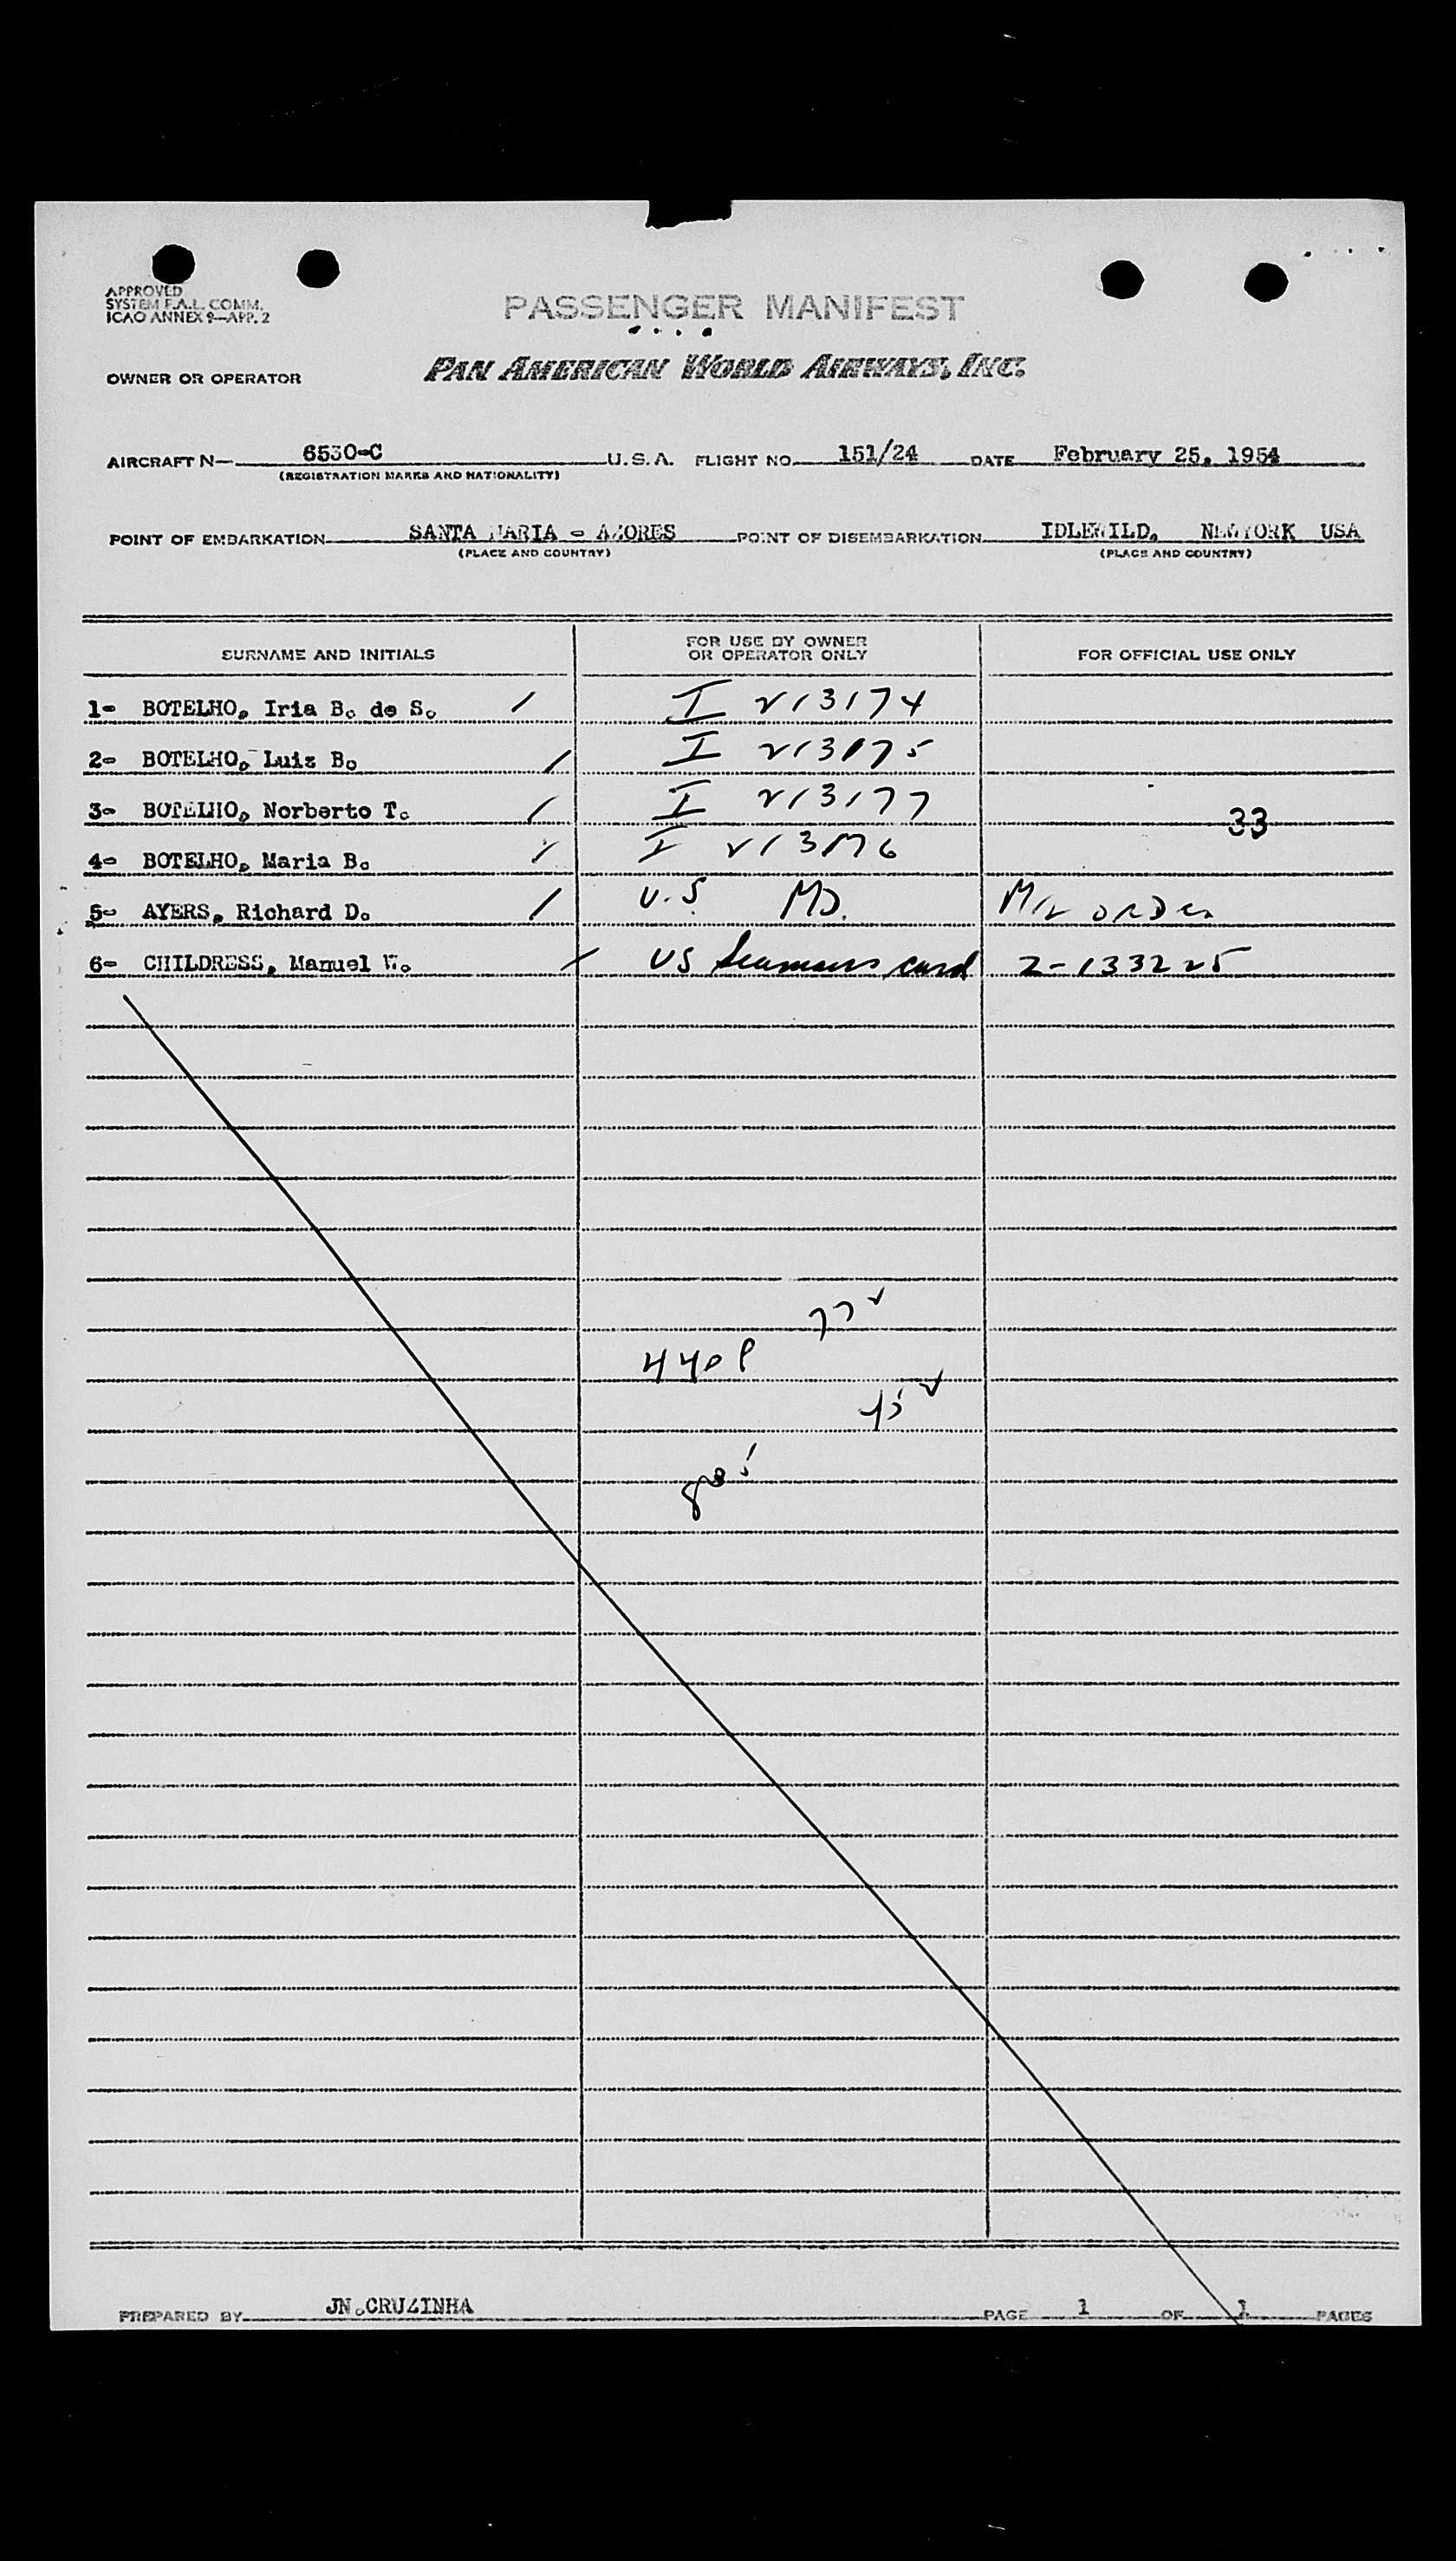 APPROVED
SYSTEM F.A.L. COMM.
ICAO ANNEX 9—APP. 2
PASSENGER MANIFEST
OWNER OR OPERATOR PAN AMERICAN WORLD AIRWAYS, INC.
AIRCRAFT N— 6530-C U.S.A. FLIGHT NO. 151/24 DATE February 25, 1954
(REGISTRATION MARKS AND NATIONALITY)
POINT OF EMBARKATION SANTA MARIA - AZORES POINT OF DISEMBARKATION IDLEWILD, NEWYORK USA
(PLACE AND COUNTRY) (PLACE AND COUNTRY)
SURNAME AND INITIALS FOR USE BY OWNER OR OPERATOR ONLY FOR OFFICIAL USE ONLY
1- BOTELHO, Iria B. de S. / I 213174
2- BOTELHO, Luiz B. / I 213175
3- BOTELHO, Norberto T. / I 213177
33
4- BOTELHO, Maria B. / I 213176
5- AYERS, Richard D. / U.S. MD. Mil order
6- CHILDRESS, Manuel W. / US Seamans card Z-133225
77
440
45
JN.CRUZINHA
PREPARED BY PAGE 1 OF 1 PAGES